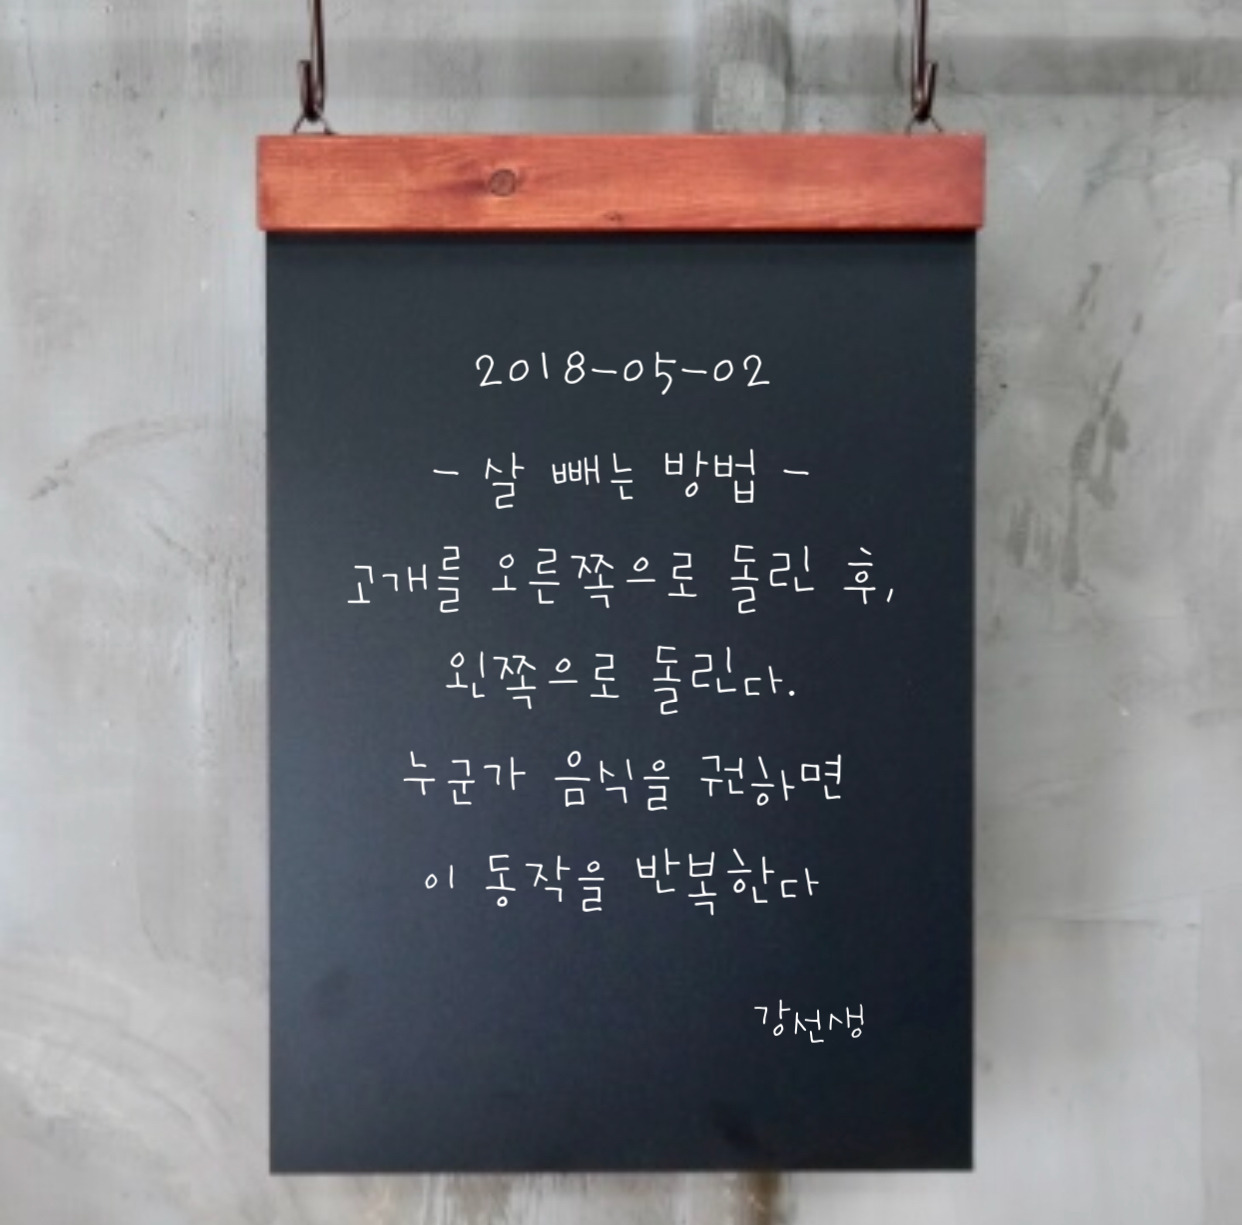 2018-05-02
- 살 빼는 방법 -
고개를 오른쪽으로 돌린 후,
왼쪽으로 돌린다.
누군가 음식을 권하면
이 동작을 반복한다
강선생